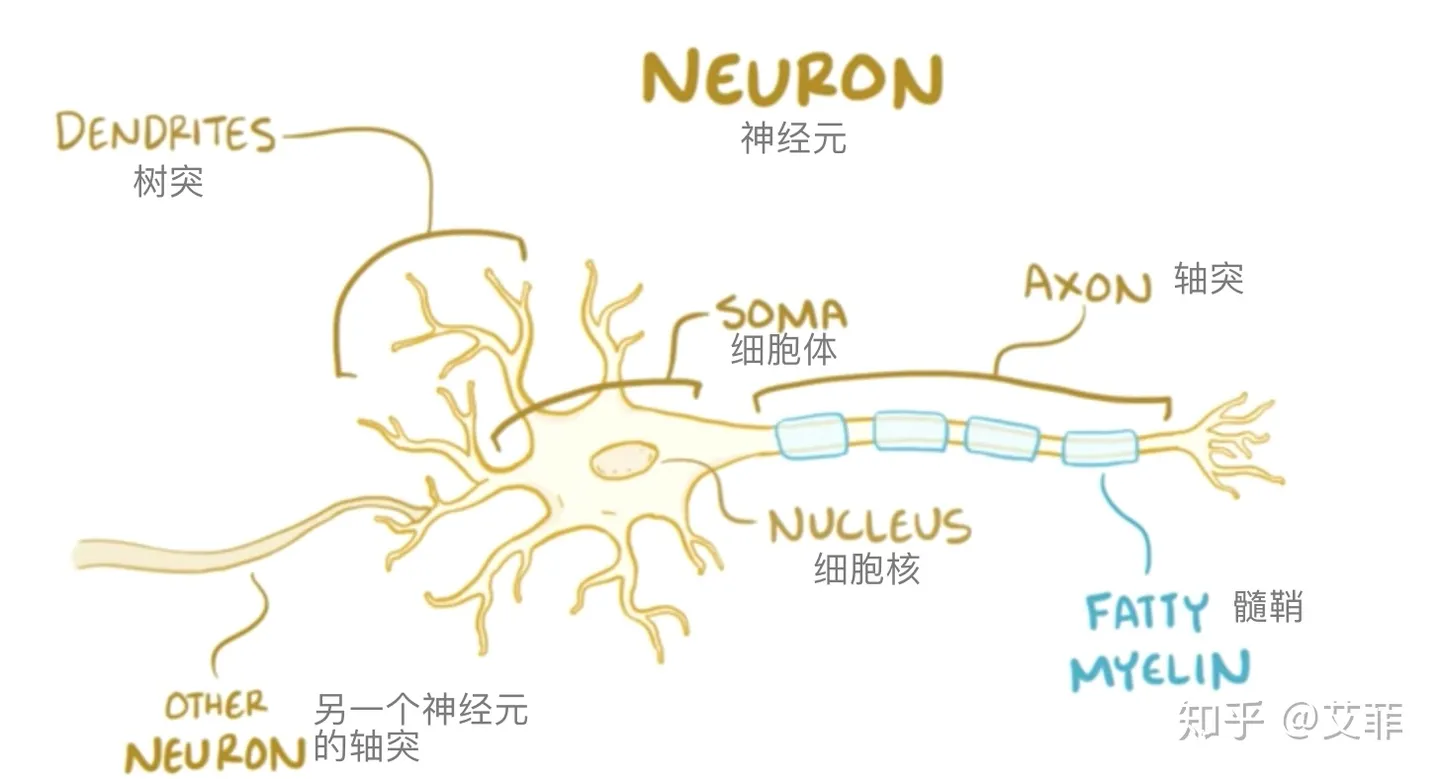 NEURON
神经元
DENDRITES
树突
AXON 轴突
SOMA
细胞体
NUCLEUS
细胞核
FATTY 髓鞘
MYELIN
OTHER
NEURON
另一个神经元
的轴突
知乎 @艾菲